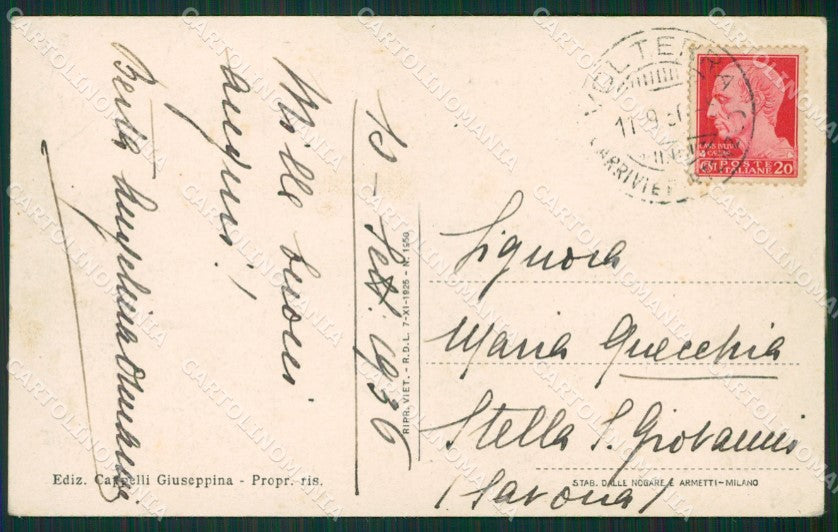 Mille buoni
auguri!
10 - Sett. 1936
RIPR. VIET. - R.D.L. 7-XI-1925 - N. 1950
VOLTERRA
POSTE
ITALIANE 20
Signora
Maria Quecchia
Stella S. Giovanni
(Savona)
Ediz. Cappelli Giuseppina - Propr. ris.
STAB. DALLE NOGARE E ARMETTI-MILANO
CARTOLINOMANIA